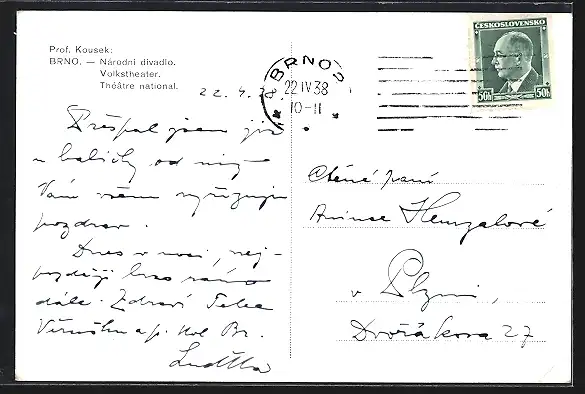 Prof. Kousek:
BRNO. — Národní divadlo.
Volkstheater.
Théâtre national.
22. 4. 38.
BRNO 2
22 IV 38
10-11
ČESKOSLOVENSKO
50h 50h
Přespal jsem již
u babičky od níž
Vám všem vyřizuji
pozdrav.
Dnes v noci, nej-
později ráno
dále. Zdraví Tebe
Věrušku a p.
Luďka
Ctěné paní
Anince Hemzalové
v Plzni,
Dvořákova 27